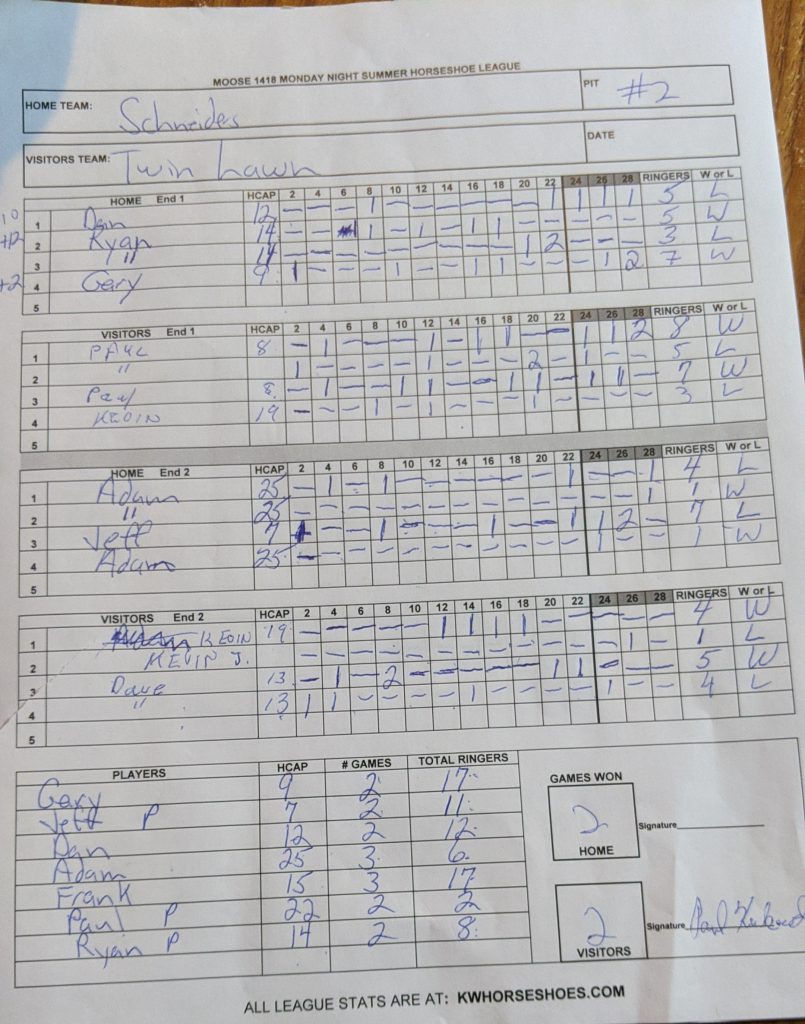 MOOSE 1418 MONDAY NIGHT SUMMER HORSESHOE LEAGUE
HOME TEAM: Schneides PIT #2
VISITORS TEAM: Twin Lawn DATE
HOME End 1 HCAP 2 4 6 8 10 12 14 16 18 20 22 24 26 28 RINGERS W or L
1 Dan 12 — — — 1 — — — — — — 1 1 1 1 5 L
2 Ryan 14 — — 1 — 1 — 1 1 — — — — — 5 W
3 " 14 — — — — — — — — — 1 2 — — — 3 L
4 Gary 9 1 — — — 1 — — 1 1 — — — 1 2 7 W
5
VISITORS End 1 HCAP 2 4 6 8 10 12 14 16 18 20 22 24 26 28 RINGERS W or L
1 PAUL 8 — 1 — — — 1 — 1 1 — — 1 1 2 8 W
2 " 1 — — — — 1 — — — 2 — 1 — — 5 L
3 Paul 8 — 1 — 1 1 — — 1 1 — 1 1 — 7 W
4 KEVIN 19 — — — 1 — 1 — — — 1 — — — — 3 L
5
HOME End 2 HCAP 2 4 6 8 10 12 14 16 18 20 22 24 26 28 RINGERS W or L
1 Adam 25 — 1 — 1 — — — — — — 1 — — 1 4 L
2 " 25 — — — — — — — — — — — — — 1 1 W
3 Jeff 7 1 — — 1 — — — 1 — — 1 1 2 — 7 L
4 Adam 25 — — — — — — — — — — — 1 — — 1 W
5
VISITORS End 2 HCAP 2 4 6 8 10 12 14 16 18 20 22 24 26 28 RINGERS W or L
1 KEVIN 19 — — — — — 1 1 1 1 — — — — — 4 W
2 KEVIN J. — — — — — — — — — — — — 1 — 1 L
3 Dave 13 — 1 — 2 — — — — — 1 1 — — — 5 W
4 " 13 1 1 — — — — — 1 — — — — 1 — — 4 L
5
PLAYERS HCAP # GAMES TOTAL RINGERS
Gary 9 2 17
Jeff P 7 2 11
Dan 12 2 12
Adam 25 3 6
Frank 15 3 17
Paul P 22 2 2
Ryan P 14 2 8
GAMES WON
2 HOME Signature
2 VISITORS Signature Paul
ALL LEAGUE STATS ARE AT: KWHORSESHOES.COM